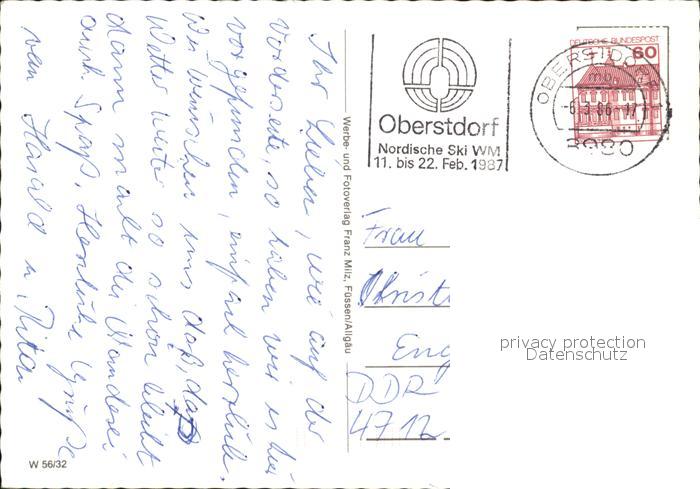 Ihr Lieben, wie auf der
Vorderseite, so haben wir es hier
vorgefunden, einfach herrlich.
Wir wünschen uns daß, daß
Wetter weiter so schön bleibt
dann macht die Wanderei
auch Spaß. Herzliche Grüße
von Harald u. Rita
W 56/32
Werbe- und Fotoverlag Franz Milz, Füssen/Allgäu
Oberstdorf
Nordische Ski WM
11. bis 22. Feb. 1987
DEUTSCHE BUNDESPOST
60
OBERSTDORF
86-17
8980
Frau
Christ
Eng
DDR
4712
privacy protection
Datenschutz